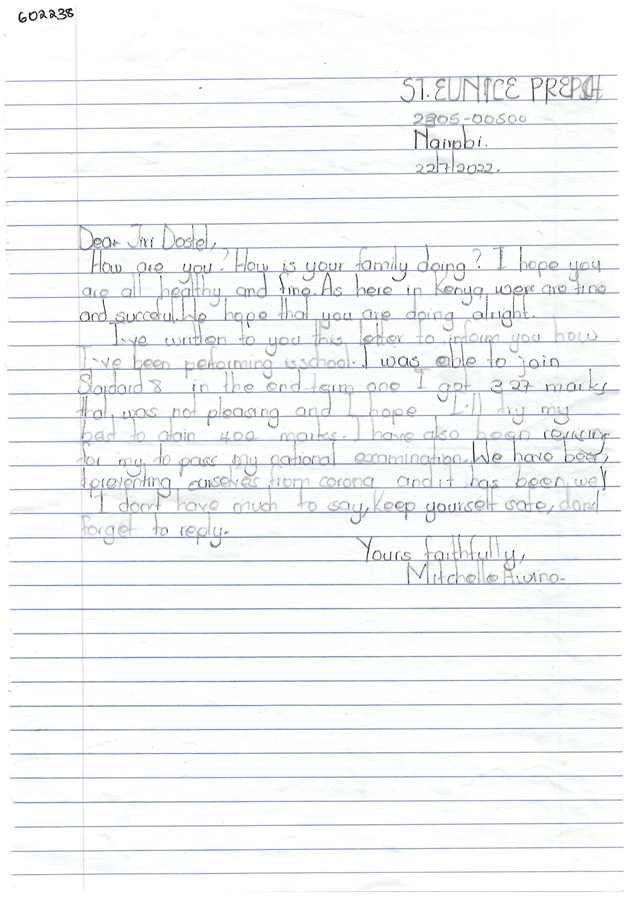 602238
ST. EUNICE PREPSCH
2805-00500
Nairobi.
22/7/2022.
Dear Jiri Dostel,
How are you? How is your family doing? I hope you
are all healthy and fine. As here in Kenya were are fine
and succeful. We hope that you are doing alright.
I've written to you this letter to inform you how
I've been peforming isschool. I was able to join
Standard 8 in the end-term one I got 327 marks
that was not pleasing and I hope I'll try my
best to atain 400 marks. I have also been revising
for my to pass my national examination. We have been
preventing ourselves from corona and it has been well
I don't have much to say, keep yourself safe, dont
forget to reply.
Yours faithfully,
Mitchelle Awino.